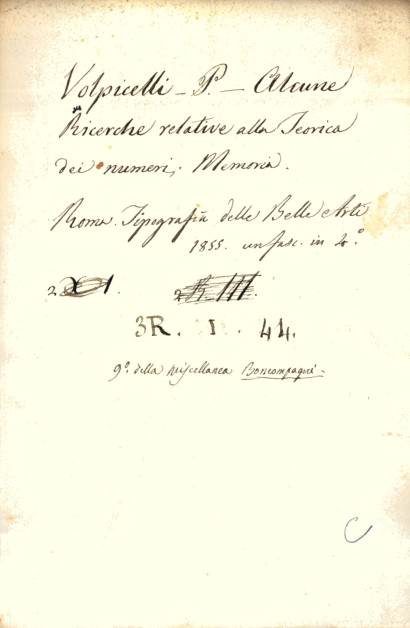 Volpicelli - P. - Alcune
Ricerche relative alla Teorica
dei numeri; Memoria.
Roma. Tipografia delle Belle Arti
1855. un fasc. in 4.°
3R. I. 44.
9.° della Miscellanea Boncompagni -
C